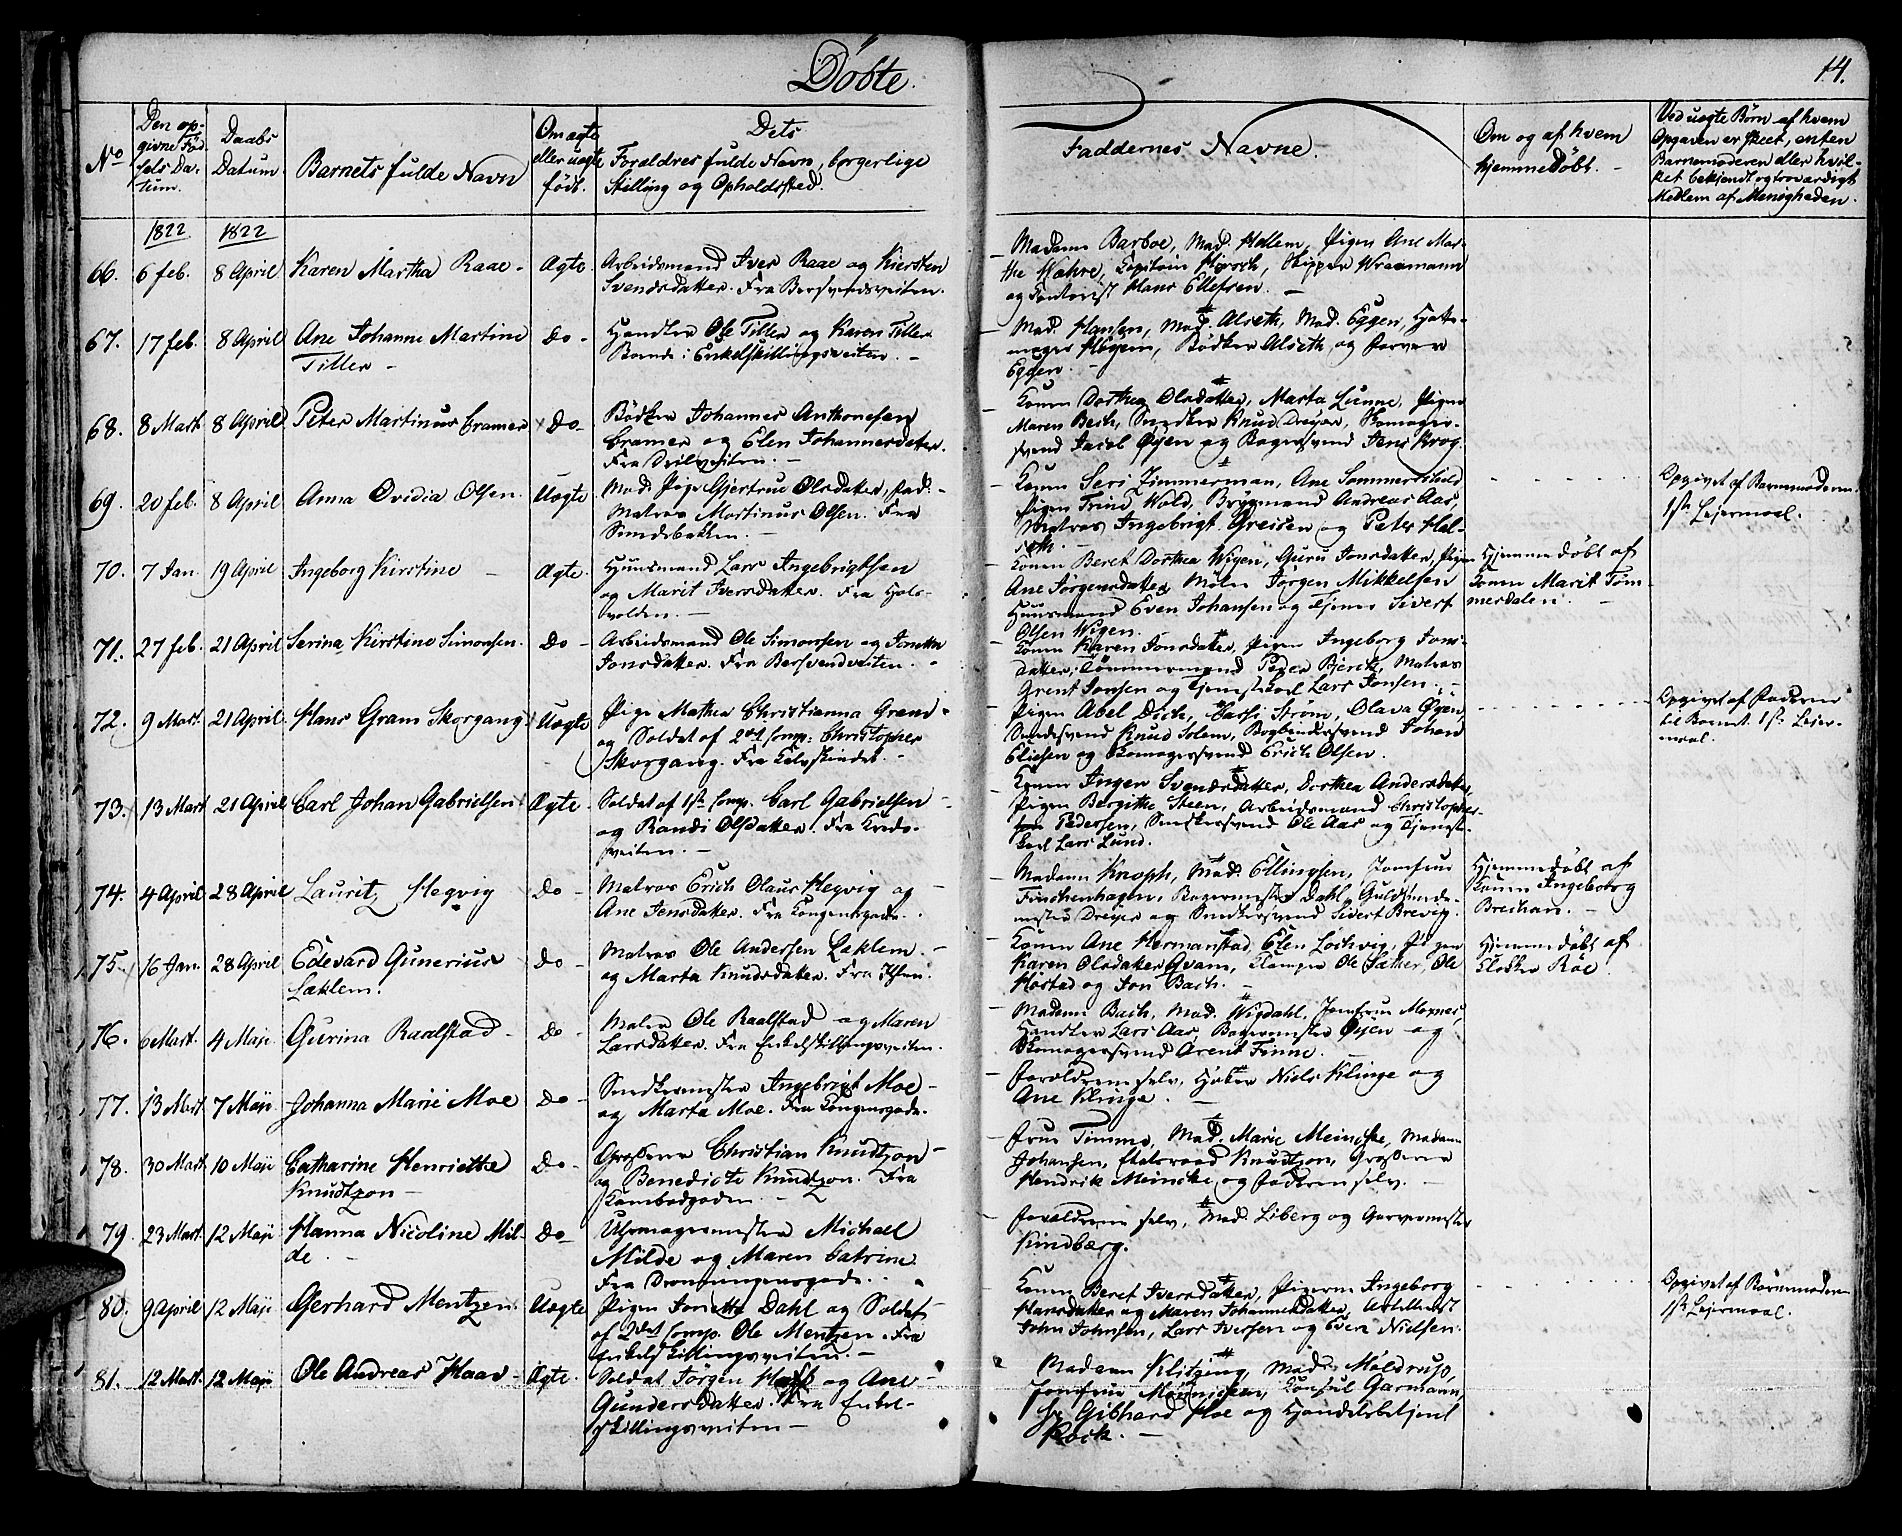 Døbte.
14.
No
Den opgivne Fødsels Datum.
Daabs Datum.
Barnets fulde Navn
Om ægte eller uægte født.
Dets Forældres fulde Navn, borgerlige Stilling og Opholdssted.
Faddernes Navne.
Om og af hvem hjemmedøbt.
Ved uægte Børn af hvem
Opgaven er skeet, enten
Barnemoderen eller hvil-
ket bekjendt og troværdigt
Medlem af Menigheden.
1822 1822
66. 6 feb. 8 April Karen Martha Raae - Ægte.
Arbeidsmand Iver Raae og Kiersten
Svendsdatter. Fra Bersvendsveiten.
Madame Barboe, Mad. Hollem, Pigen Ane Mar-
the Mæhre, Capitain Hirsch, Skipper
og Contorist Hans Ellefsen. -
67. 17 feb. 8 April Ane Johanne Martine
Tiller - Do -
Handler Ole Tiller og Karen Tiller
Boende i Enkelskillingsveiten. -
Mad. Hansen, Mad. Alseth, Mad. Eggen, Hatte-
mager Høyem, Bødker Alseth og Farver
Eggen. -
68. 8 Mart. 8 April Peter Martinus Cramer Do -
Bödker Johannes Anthonesen
Cramer og Elen Johannesdatter.
Fra Ørilveiten. -
Konen Dorthea Olsdatter, Marta Lunne, Pigen
Maren Bech, Snedker Knud Dreyer, Skomager-
svend Jacob Øyen og Bagersvend Jens Krog.
69. 20 feb. 8 April Anna Ovidia Olsen. Uægte
Mod. Pige Gjertrue Olsdatter, Fad.
Matros Martinus Olsen. Fra
Sandbakken. -
Konen Seri Zimmerman, Ane Sommerschild
Pigen Trine Wold, Brygmand Andreas Aas,
Matros Ingebrigt Greisen og Peter Hal-
seth. -
Opgivet af Barnemoderen.
1ste Lejermaal.
70. 7 Jan. 19 April Ingeborg Kirstine - Ægte.
Huusmand Lars Ingebrigtsen
og Marit Iversdatter. Fra
volden. -
Konen Beret Dorthea Wigen, Guru Jonsdatter, Pigen
Ane Jørgensdatter, Møller Jørgen Mikkelsen
Huusmand Even Johansen og Tjener Sivert
Olsen Wigen.
Hjemmedøbt af
Konen Marit Tøm-
merdalen. -
71. 27 feb. 21 April Serina Kirstine Simonsen. Do -
Arbeidsmand Ole Simonsen og Jonetta
Jonsdatter. Fra Bersvendveiten.
Konen Karen Jonsdatter, Pigen Ingeborg Jons-
datter, Tømmermand Peder Bjerck, Matros
Grent Jonsen og Tjenestekarl Lars Jonsen. -
72. 9 Mart. 21 April Hans Gram Skorgang Uægte
Pige Mathea Christianna Gram
og Soldat af 2det Comp: Christopher
Skorgang. Fra Kalvskindet. -
Pigen Abel Dick, Strøm, Olava Øyen,
Smedesvend Knud Solem, Bogbindersvend Johan
Eliesen og Skomagersvend Erich Olsen.
Opgivet af Faderen
til Barnet. 1ste Lejer-
maal.
73. 13 Mart. 21 April Carl Johan Gabrielsen Ægte
Soldat af 1ste Comp. Carl Gabrielsen
og Randi Olsdatter. Fra Kreds-
veiten. -
Konen Ingen Svendsdatter, Dorthea Andersdatter,
Pigen Bergithe Steen, Arbeidsmand Christopher
Pedersen, Snedkersvend Ole Aas og Tjeneste-
karl Lars Lund.
74. 4 April 28 April Lauritz Hegvig Do -
Matros Erich Olaus Hegvig og
Ane Jensdatter. Fra Kongensgade.
Madame Knoph, Mad. Ellingsen, Jomfrue
Finchenhagen, Bagermester Dahl, Guldsmede-
mester Dreyer og Snedkersvend Sivert Brevig.
Hjemmedøbt af
Konen Ingeborg
Brechan. -
75. 16 Jan. 28 April Edevard Gunerius
Læklem. Do -
Matros Ole Andersen Læklem
og Marta Knudsdatter. Fra Ihlen.
Konen Ane Hermanstad, Elen Lochvig, Pigen
Karen Olsdatter Qvam, Ole Sæther, Ole
Hostad og Jon Bach. -
Hjemmedøbt af
Klokker Røe.
76. 6 Mart. 4 Maji Gurina Raalstad - Do -
Maler Ole Raalstad og Maren
Larsdatter. Fra Enkelskillingsveiten.
Madame Bach, Mad. Wigdahl, Jomfrue Moxnes,
Handler Lars Aas, Bagermester Øyen og
Skomagersvend Arent Finne.
77. 13 Mart. 7 Maji Johanna Marie Moe Do -
Snedkermester Ingebrigt Moe
og Marta Moe. Fra Kongensgade.
Forældrene selv, Høker Niels Klinge og
Ane Klinge. -
78. 30 Mart. 10 Maji Catharine Henriette
Knudtzon - Do -
Grosserer Christian Knudtzon
og Benedicte Knudtzon. Fra
Sambodgaden. -
Frue Timme, Mad. Marie Meincke, Madame
Johansen, Etatsraad Knudtzon, Grosserer
Hendrik Meincke, og Faderen selv. -
79. 23 Mart. 12 Maji Hanna Nicoline Mil-
de. - Do -
Uhrmagermester Michael
Milde og Maren Catrine.
Fra Dronningensgade.
Forældrene selv, Mad. Liberg og Garvermester
Kindberg.
80. 9 April 12 Maji Gerhard Mentzen. Uægte
Pigen Jonetta Dahl og Soldat
af 2det Comp. Ole Mentzen. Fra
Enkelskillingsveiten. -
Konen Beret Iversdatter, Pigerne Ingeborg
Hansdatter og Maren Johannesdatter, Artillerist
John Johnsen, Lars Iversen og Even Nielsen.
Opgivet af Barnemoderen
1ste Lejermaal.
81. 12 Mart. 12 Maji Ole Andreas Haas - Ægte.
Soldat Jørgen og Ane
Gundersdatter. Fra Enkel-
skillingsveiten -
Madam Klitzing, Mad. Moldrup,
Jomfrue Consul Garmann,
Hr Gibhard Moe og Handelsbetjent
Rock. -